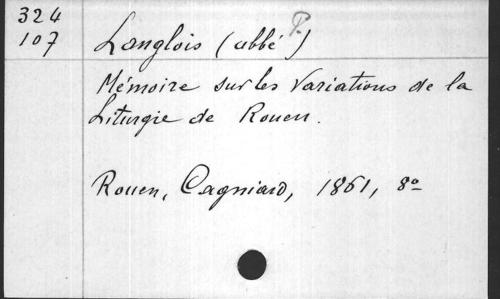 324
107
Langlois (abbé P.)
Mémoire sur les Variations de la
Liturgie de Rouen.
Rouen, Cagniard, 1861, 8º